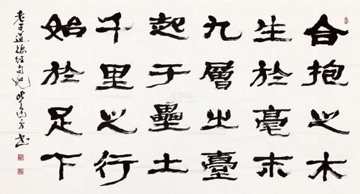 合抱之木
生於毫末
九層之臺
起于壘土
千里之行
始於足下
老子道德經句